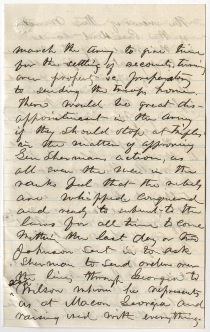 march the Army to give time
for the settling of accounts, turning
over property &c. preparatory
to sending the troops home
There would be great dis-
appointment in the Army
if they should stop at trifles
in the matter of approving
Gen Shermans action, as
all even the men in the
ranks feel that the rebels
are whipped conquered
and ready to submit to the
laws for all time to come
Within the last day or two
Johnson sent in to ask
Sherman to send orders over
the lines through Georgia to
Wilson whom he represents
as at Macon Georgia and
raising with everything